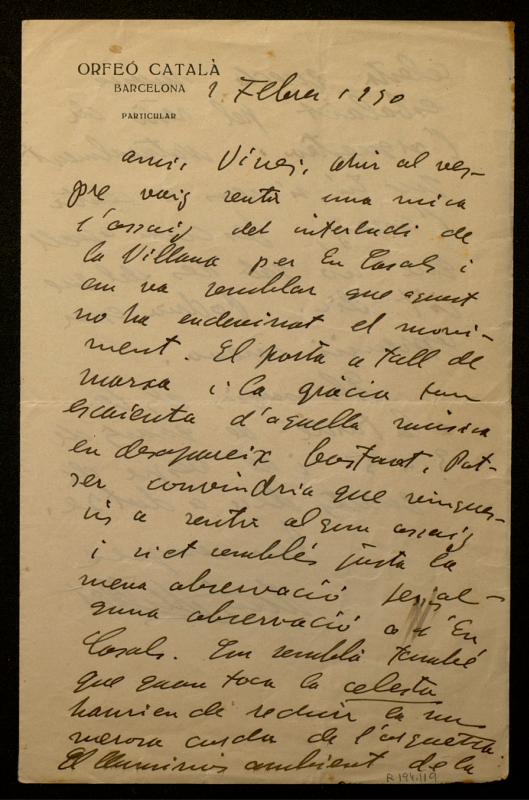 ORFEÓ CATALÀ
BARCELONA
PARTICULAR
1 Febrer 1930
Amic Vives, ahir al ves-
pre vaig sentir una mica
l'assaig del interludi de
la Villana per En Casals i
em va semblar que aquest
no ha endevinat el movi-
ment. El porta a tall de
marxa i la gràcia tan
escaienta d'aquella música
en desapareix bastant. Pot-
ser convindria que vingues-
sis a sentir algun assaig
i si et semblés justa la
meva observació fes al-
guna observació a'n En
Casals. Em semblà també
que quan toca la celesta
haurien de reduir la nu-
merosa corda de l'orquestra.
El lluminós ambient de la
R.194.119